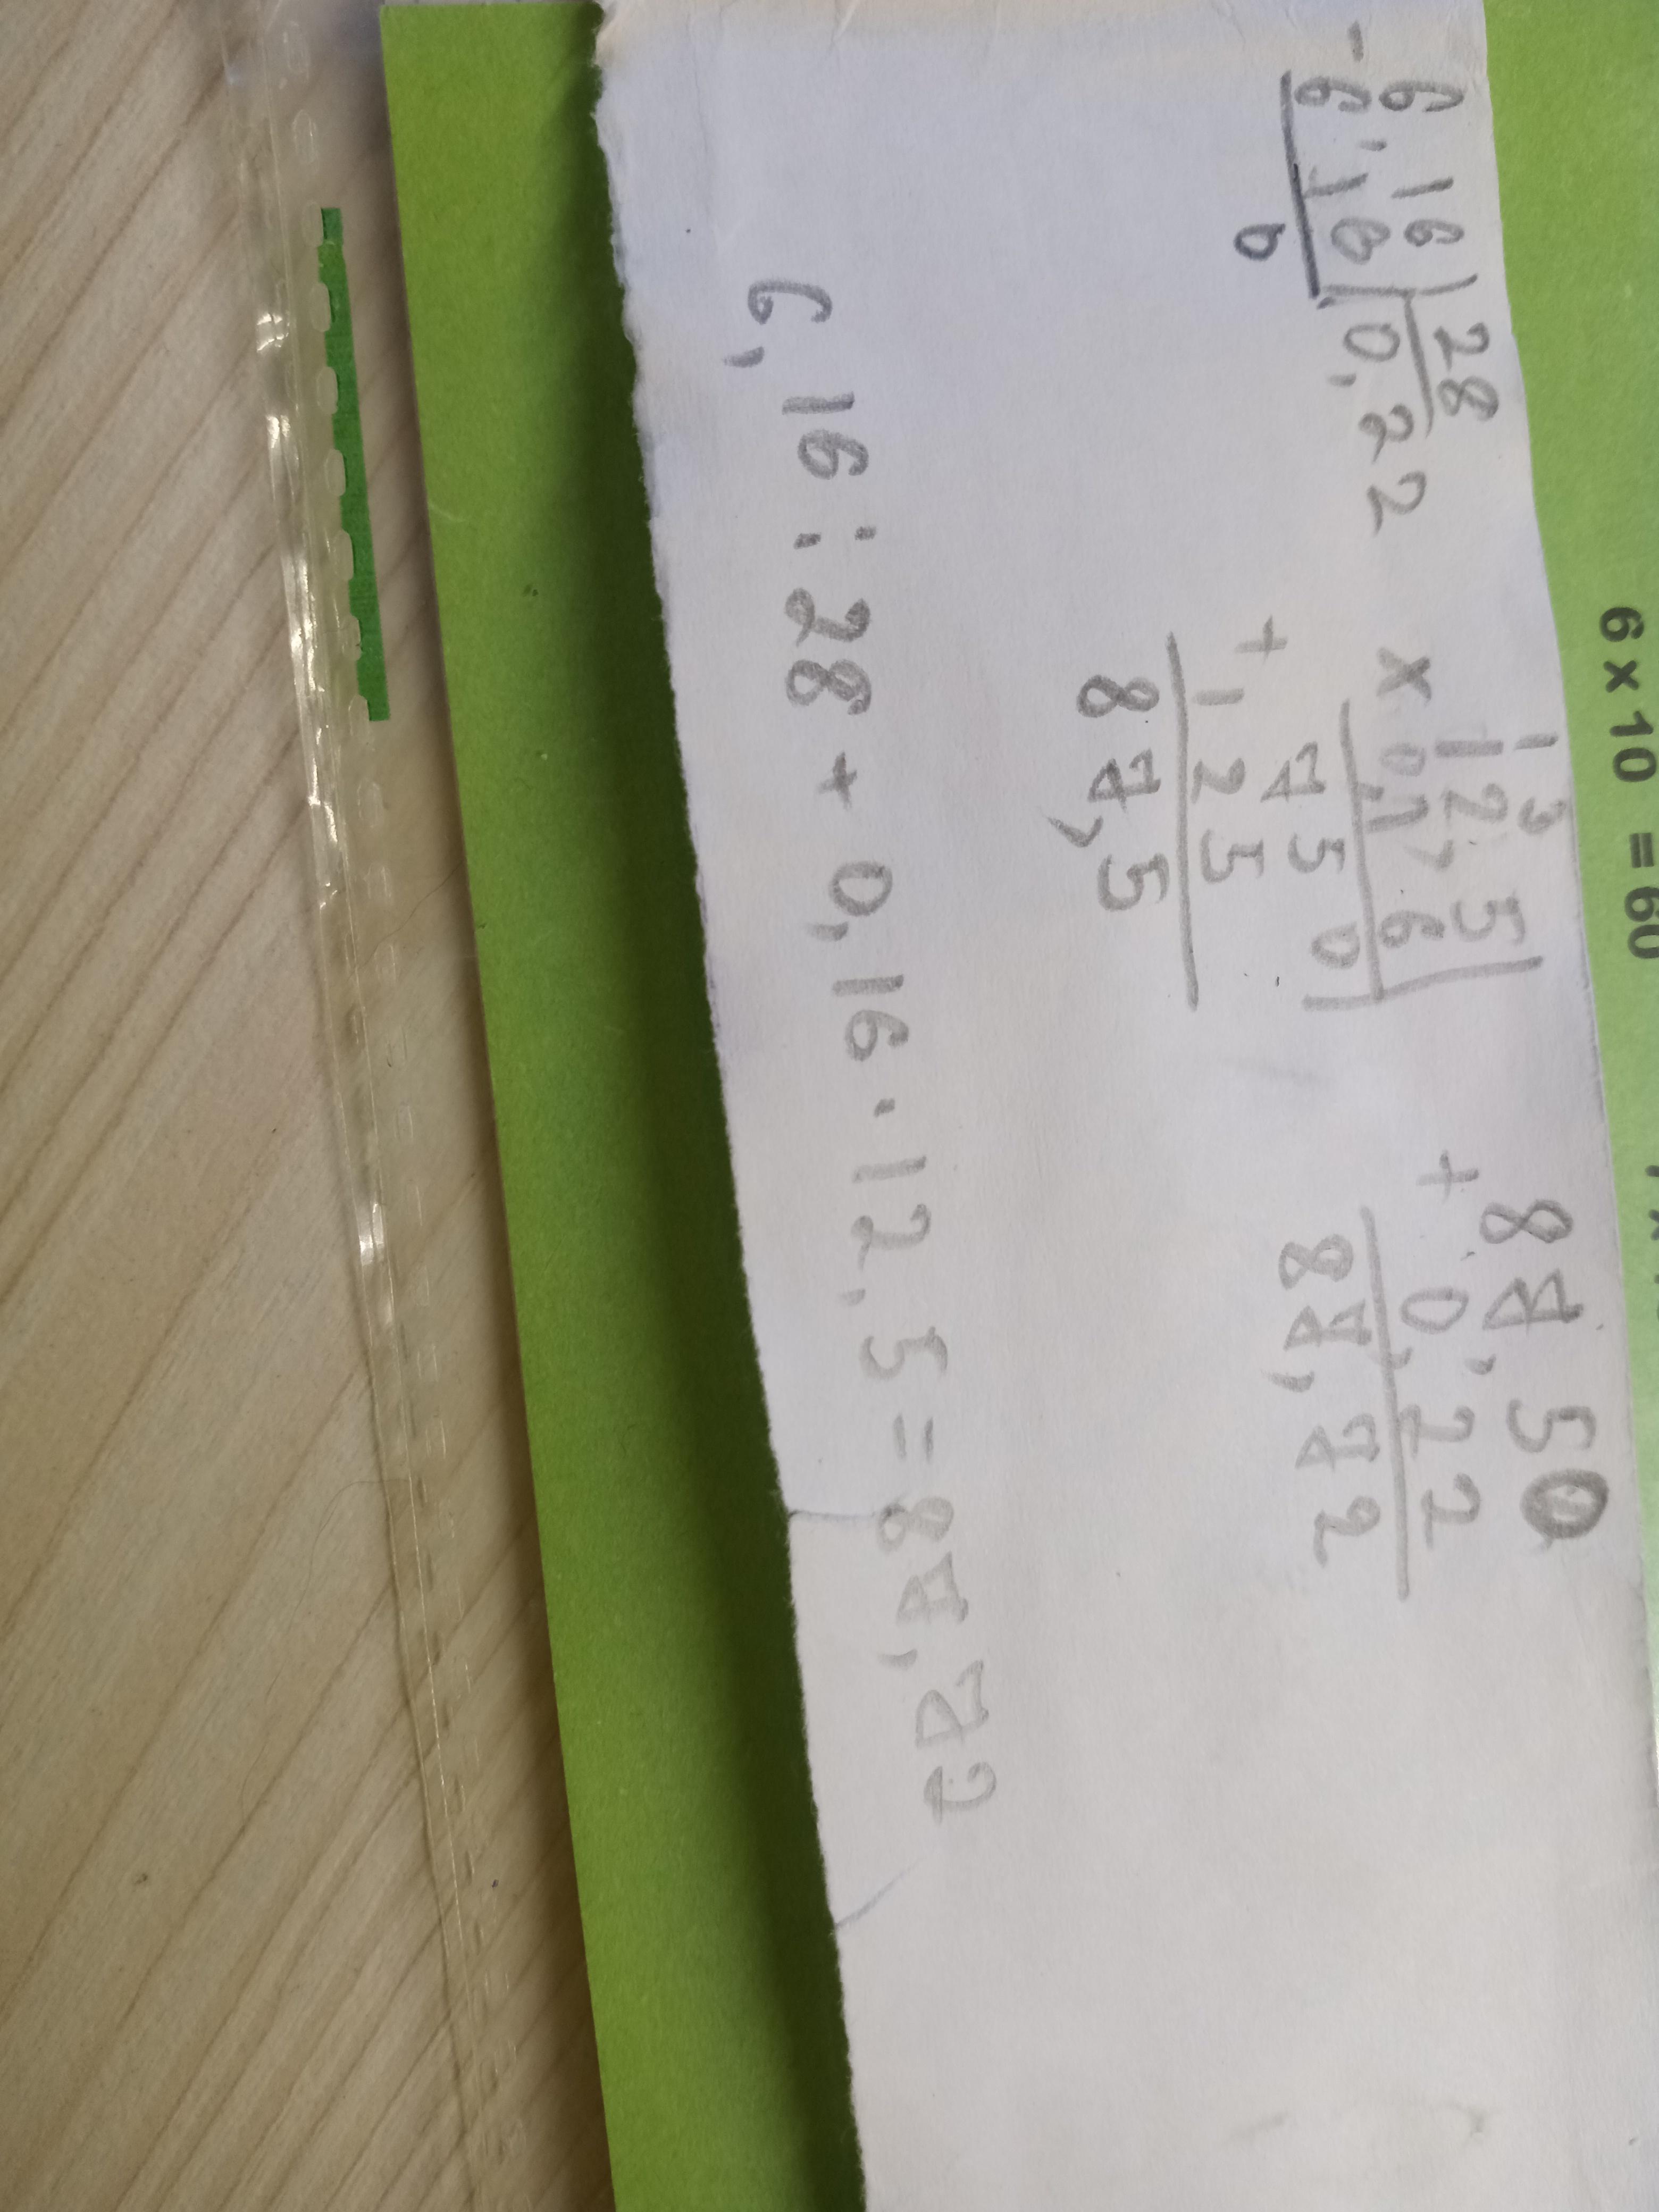 6 x 10 = 60
6,16 | 28
- 6,16 | 0,22
0
1 3
12,5
x 0,1 6
75 0
+ 125
87,5
87,50
+ 0,22
87,72
6,16 : 28 + 0,16 · 12,5 = 87,72